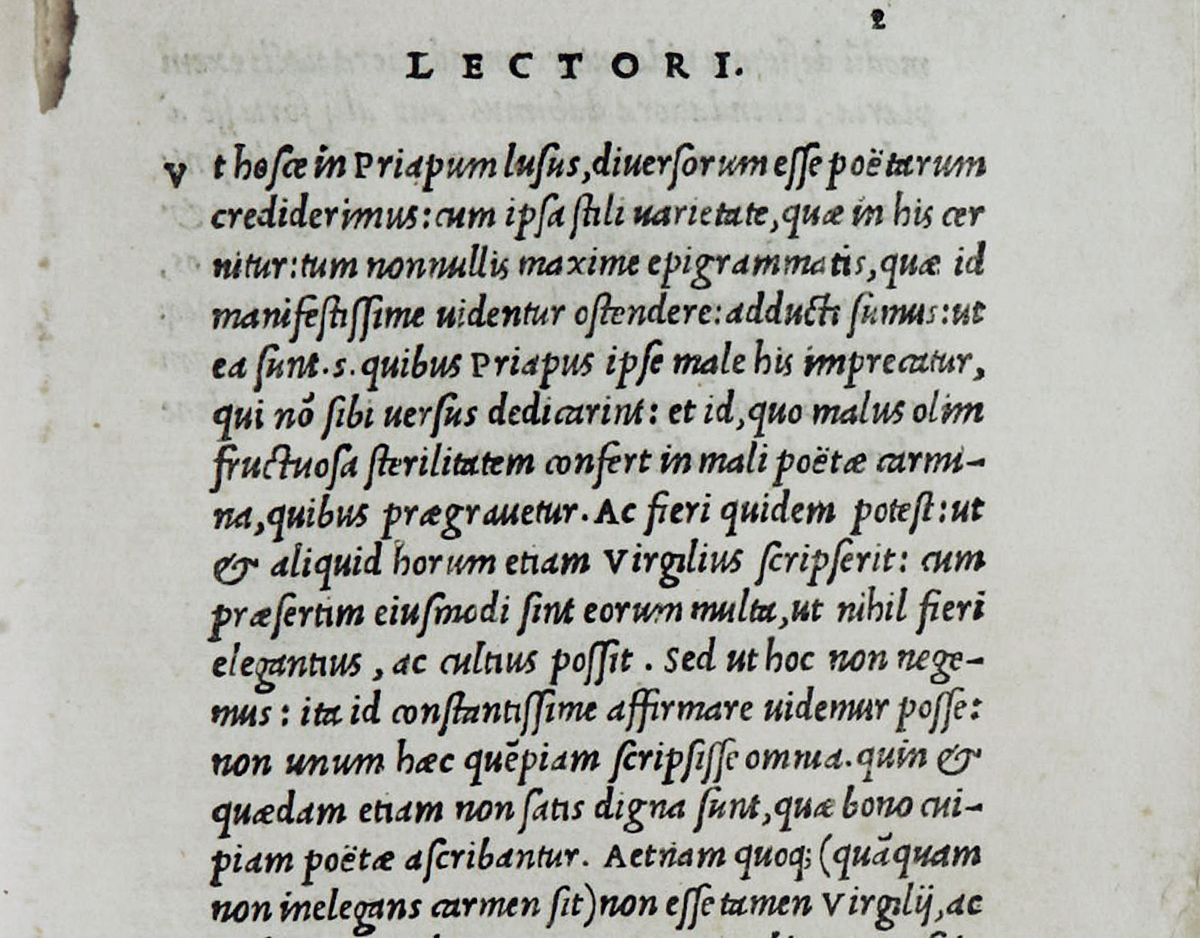 2
LECTORI.
Vt hosce in Priapum lusus,diuersorum esse poëtarum
crediderimus:cum ipsa stili uarietate,quæ in his cer
nitur:tum nonnullis maxime epigrammatis,quæ id
manifestissime uidentur ostendere:adducti sumus:ut
ea sunt.s.quibus Priapus ipse male his imprecatur,
qui nō sibi uersus dedicarint: et id,quo malus olim
fructuosa sterilitatem confert in mali poëtæ carmi-
na,quibus prægrauetur.Ac fieri quidem potest:ut
& aliquid horum etiam Virgilius scripserit: cum
præsertim eiusmodi sint eorum multa,ut nihil fieri
elegantius , ac cultius possit . Sed ut hoc non nege-
mus : ita id constantissime affirmare uidemur posse:
non unum hæc quēpiam scripsisse omnia.quin &
quædam etiam non satis digna sunt,quæ bono cui-
piam poëtæ ascribantur. Aetnam quoq; (quāquam
non inelegans carmen sit)non esse tamen Virgilij,ac